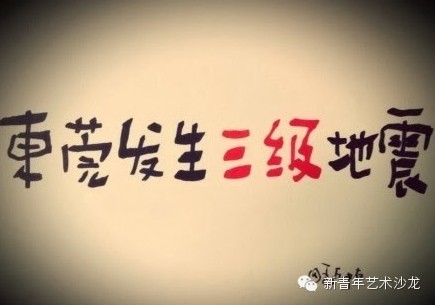 東莞发生三级地震
新青年艺术沙龙